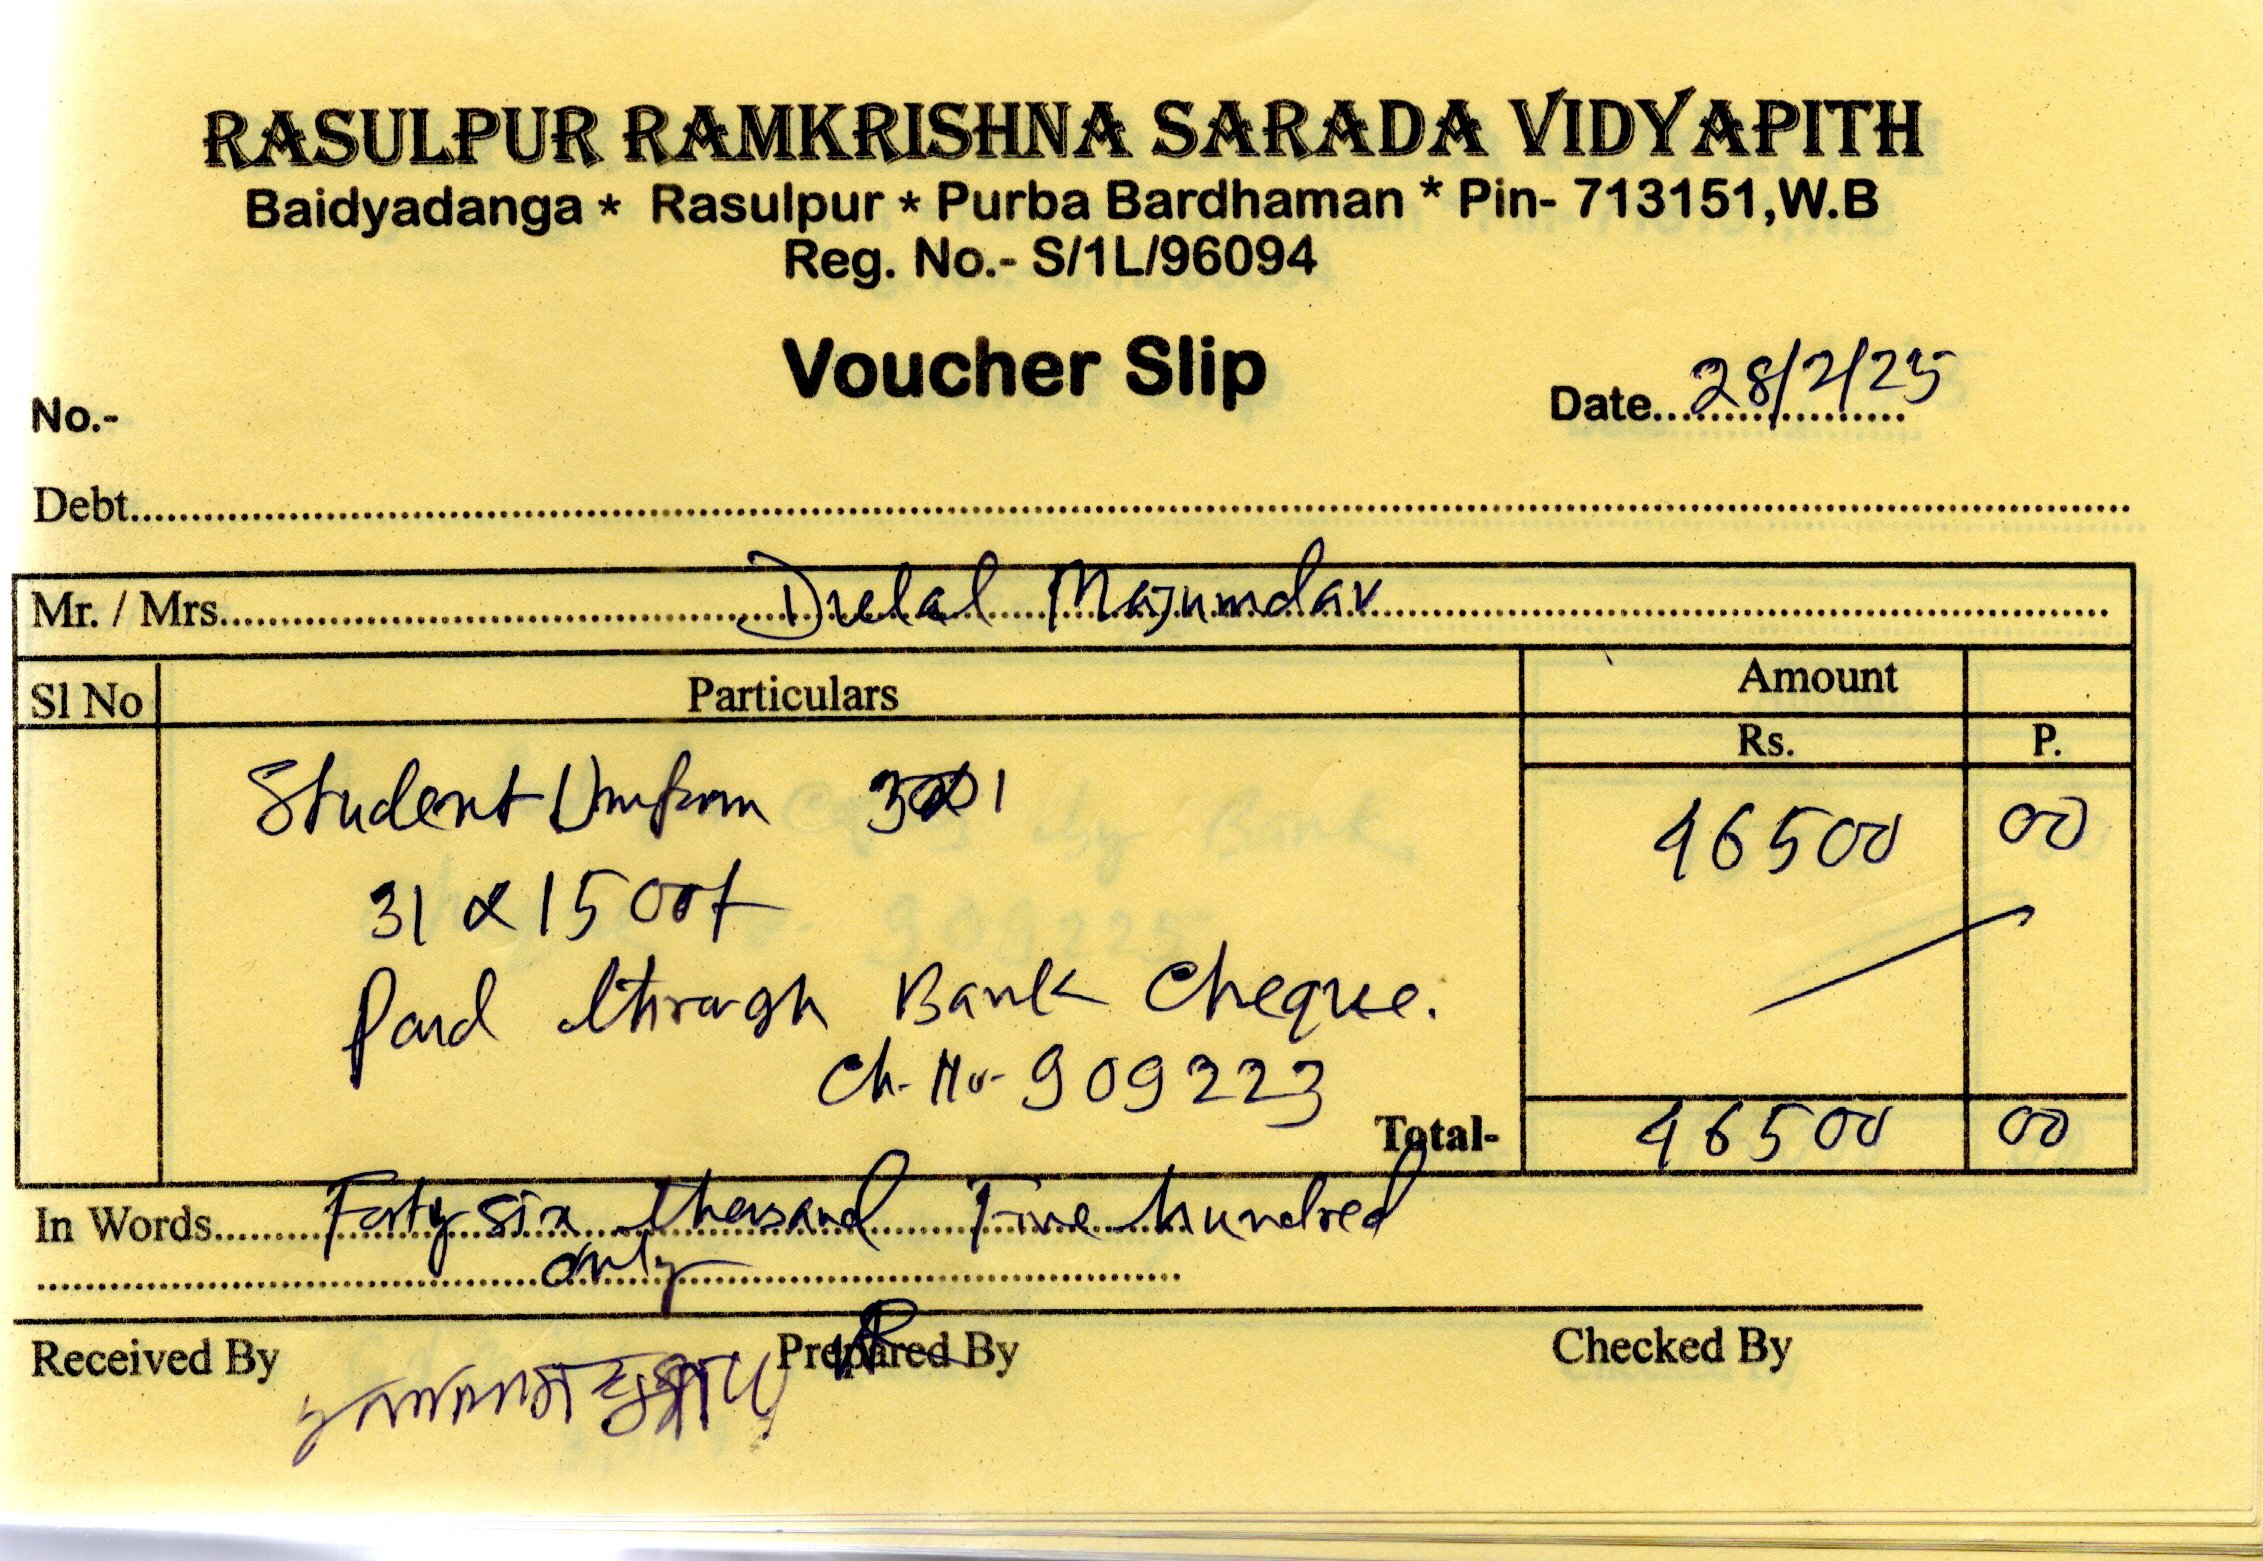 RASULPUR RAMKRISHNA SARADA VIDYAPITH
Baidyadanga * Rasulpur * Purba Bardhaman * Pin- 713151,W.B
Reg. No.- S/1L/96094
Voucher Slip
No.- Date 28/2/25
Debt
Mr. / Mrs. Dulal Majumdar
Sl No Particulars Amount
Rs. P.
Student Uniform 46500 00
31 x 1500/-
Paid through Bank Cheque.
Ch- No- 909223
Total- 46500 00
In Words Forty six thousand Five hundred
only
Received By Prepared By Checked By